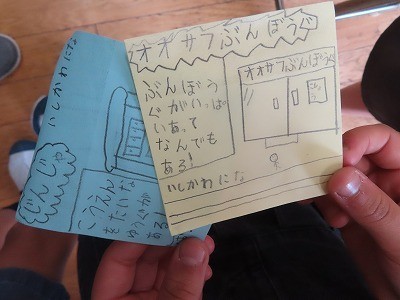 オオサフぶんぼうぐ
ぶんぼう
ぐがいっぱ
いあって
なんでも
ある!
オオサフぶんぼうぐ
いしかわにな
じんじゃ
こうえん
みたいな
ゆうぐが
ある
いしかわにな